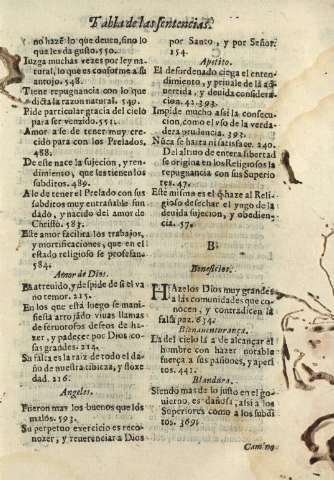 Tabla de las sentencias.
no hazẽ lo que deuen, sino lo
que les da gusto. 550.
Iuzga muchas vezes por ley na
tural, lo que es conforme a su
antojo. 548.
Tiene repugnancia con lo que
dicta la razon natural. 549.
Pide particular gracia del cielo
para ser vencido. 551.
Amor a se de tener muy cre
cido para con los Prelados.
488.
De este nace la sujecion, y ren-
dimiento, que les tienen los
subditos. 489.
A le de tener el Prelado con sus
subditos muy entrañable fun
dado, y nacido del amor de
Christo. 583.
Este amor facilita los trabajos,
y mortificaciones, que en el
estado religioso se professan.
584.
Amor de Dios.
Es atreuido, y despide de si el va
no temor. 215.
En los que está luego se mani-
fiesta arrojãdo viuas llamas
de feruorosos deseos de ha-
zer, y padecer por Dios co
sas grandes. 214.
Su falta es la raiz de todo el da
ño de nuestra tibieza, y floxe
dad. 216.
Angeles.
Fueron mas los buenos que los
malos. 593.
Su perpetuo exercicio es reco-
nozer, y reuerenciar a Dios
por Santo, y por Señor.
154.
Apetito.
El desordenado ciega el enten-
dimiento, y priuale de la ad-
uertencia, y deuida considera-
cion. 42. 393.
Impide mucho assi la conse-
cucion, como el vso de la verda
dera prudencia. 393.
Nũca se harta ni satisface. 240.
Del alma de entera libertad
se origina en los Religiosos la
repugnancia con sus Superio
res. 47.
Este mismo es el q̃ haze al Reli-
gioso desechar el yugo de la
deuida sujecion, y obedien-
cia. 57.
B
Beneficios.
HAzelos Dios muy grandes
a las comunidades que co
nocen, y contradicen la
falsa paz. 634.
Bienauenturança.
La del cielo a de alcançar el
hombre con hazer notable
fuerça a sus passiones, y apeti
tos. 441.
Blandura.
Siendo mas de lo justo en el go-
uierno, es dañosa, assi a los
Superiores como a los subdi
tos. 369.